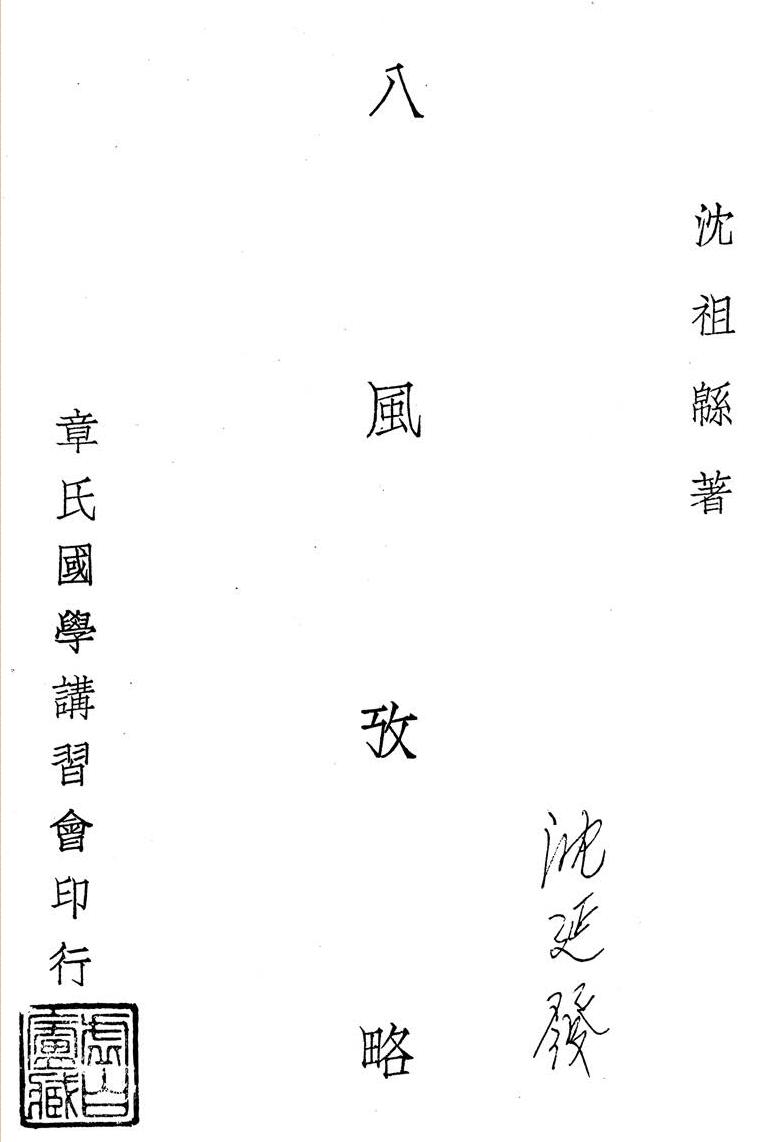 沈祖緜著
八風攷略
沈延發
章氏國學講習會印行